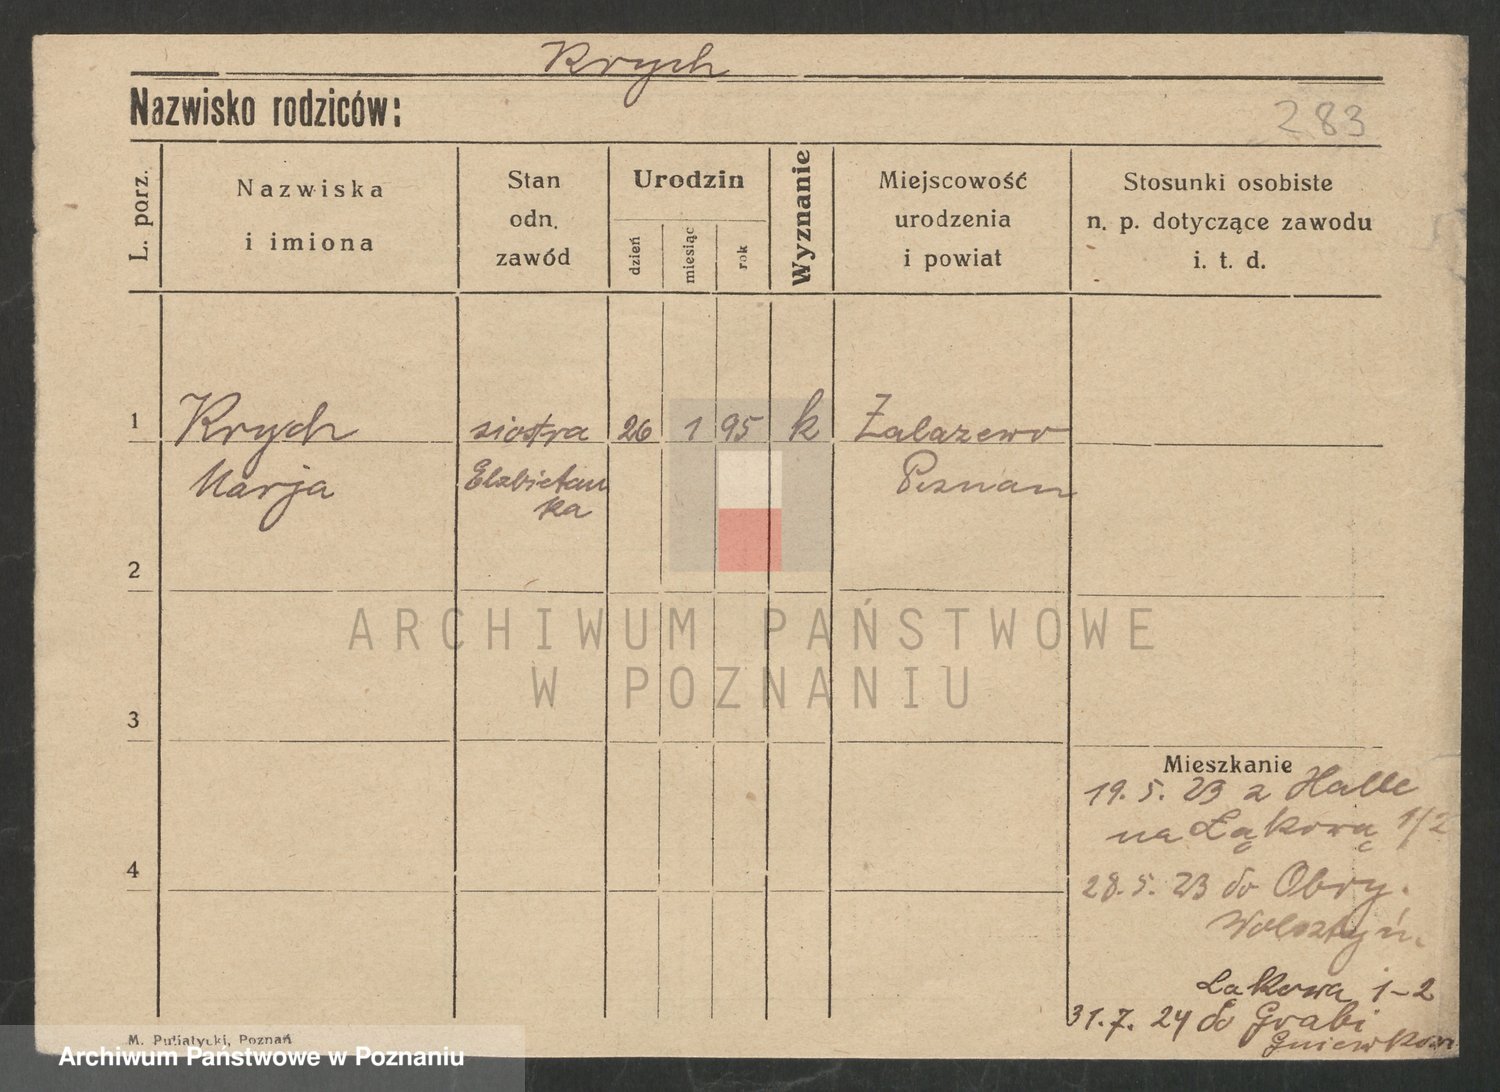 Krych
Nazwisko rodziców:
283
L. porz.
Nazwiska
i imiona
Stan
odn.
zawód
Urodzin
dzień
miesiąc
rok
Wyznanie
Miejscowość
urodzenia
i powiat
Stosunki osobiste
n. p. dotyczące zawodu
i. t. d.
1
Krych siostra 26 1 95 k Zalazewo
Marja Elzbietan Poznan
ka
2
ARCHIWUM PAŃSTWOWE
W POZNANIU
3
Mieszkanie
19. 5. 23 z Halle
na Łąkową 1/2
4
28. 5. 23 do Obry.
Wolsztyń.
Łąkowa 1-2
31. 7. 24 do Grabi
Gniewkow
M. Putiatycki, Poznań
Archiwum Państwowe w Poznaniu